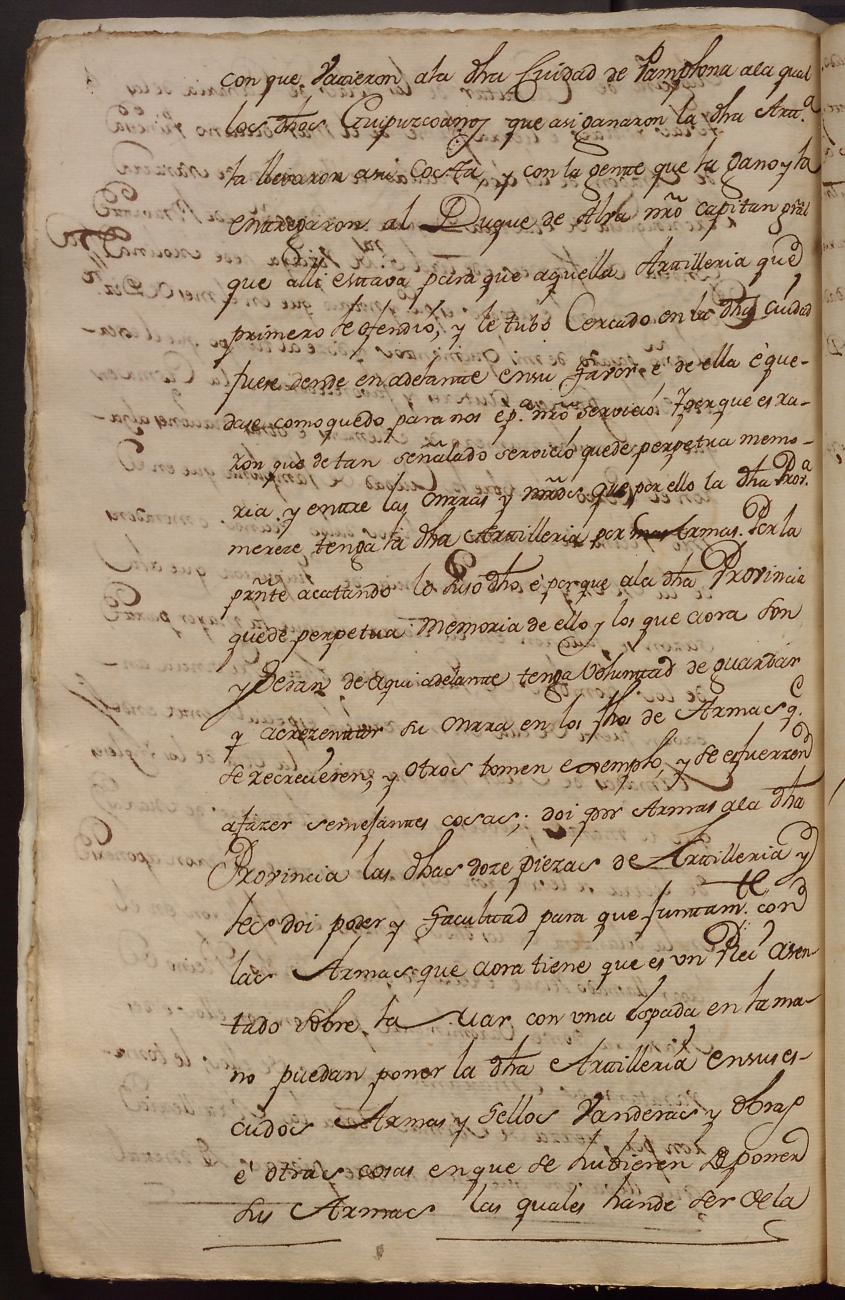 con que Vatieron ala dha Ciudad de Pamplona ala qual
los dhos Guipuzcoanos que asi ganaron la dha Artt.ª
la llevaron asu Costa, y con la gente que la gano y la
entregaron al Duque de Alva nrõ capitan gral
que alli estava para que aquella Artilleria que
primero le ofendio, y le tubo Cercado en la dha ciudad
fuese dende en adelante en su favor e de ella é que-
dase como quedo para nos é p.ª nrõ servicio. Y por que es ra-
zon que de tan señalado servicio quede perpetua memo-
ria y entre las onrras y mrds que por ello la dha Prov.ª
mereze tenga la dha Artilleria por Armas. Por la
prñte acatando lo suso dho, é porque ala dha Provincia
quede perpetua Memoria de ello y los que aora son
y Seran de aqui adelante tenga Voluntad de guardar
y acrezentar su onrra en los fhos de Armas q.
se recrecieren, y otros tomen exemplo, y se esfuerzen
afazer semejantes cosas; doi por Armas ala dha
Provincia las dhas doze piezas de Artilleria y
les doi poder y facultad para que juntam.te con
las Armas que aora tiene que es un Rei asen-
tado sobre la Mar con una Espada en la ma-
no puedan poner la dha Artilleria en sus es-
cudos Armas y Sellos Vanderas y obras
é otras cosas en que se hubieren de poner
sus Armas las quales hande ser de la